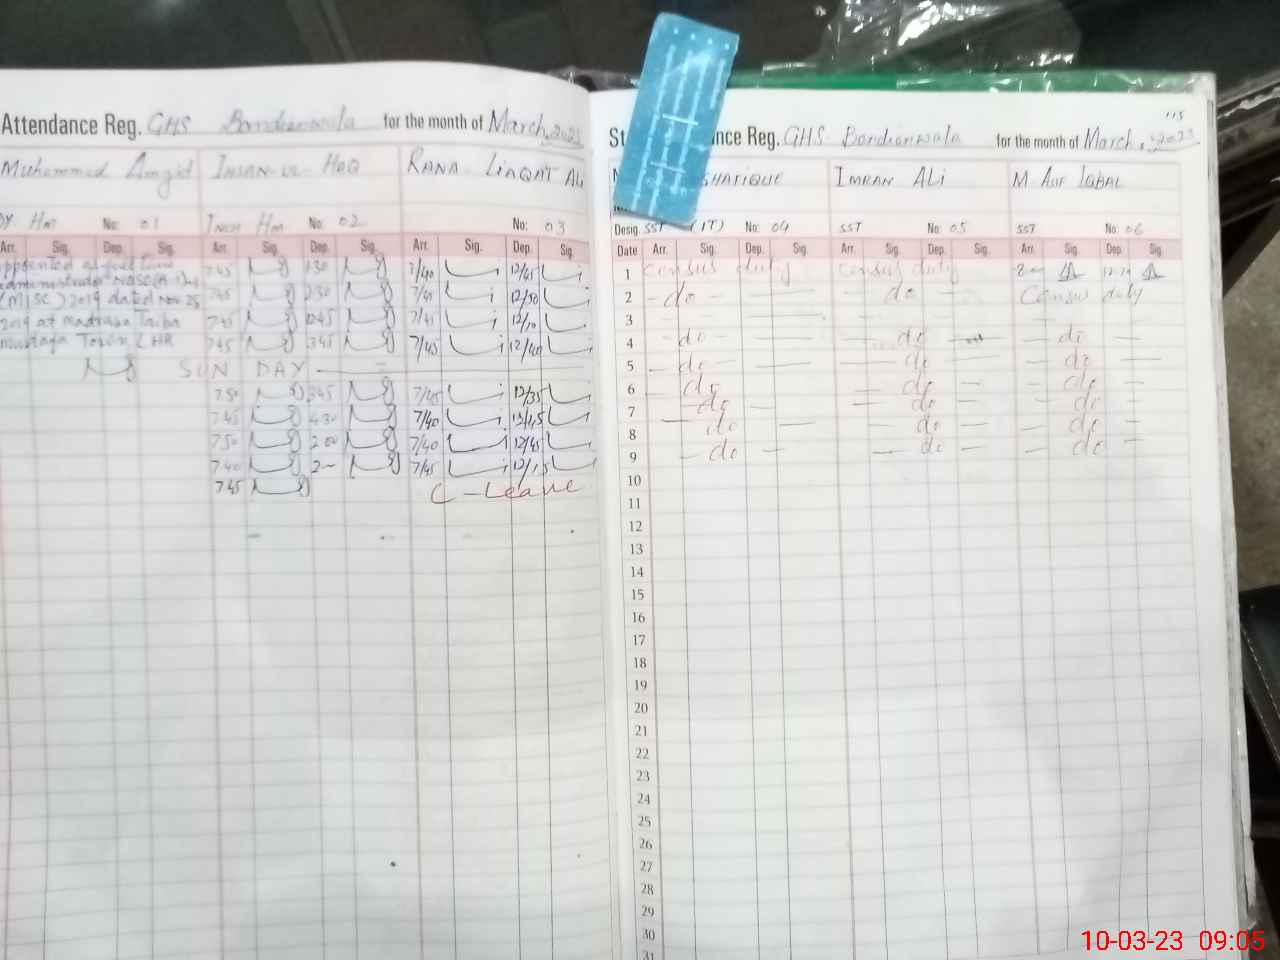 Attendance Reg. GHS Bandianwala for the month of March, 2023
Muhammad Amjid INSAN-UL-HAQ RANA LIAQAT ALi
DY HM No: 01 INCH HM No: 02 No: 03
Arr. Sig. Dep. Sig. Arr. Sig. Dep. Sig. Arr. Sig. Dep. Sig.
appointed as full time 745 130 7/40 12/45
administrator 745 230 7/45 12/50
(MJSC) 2019 dated Nov 25 745 1245 7/45 12/10
2019 at madrasa Taiba 745 345 7/45 12/40
mustafa Town LHR
SUN DAY
750 345 7/45 12/35
745 430 7/40
750 200 7/40 12/45
740 2- 7/45 12/15
745 C-Leave
115
nce Reg. GHS Bandianwala for the month of March, 2023
SHAFIQUE IMRAN ALi M ASIF IQBAL
Desig. SST (IT) No: 04 SST No: 05 SST No: 06
Date Arr. Sig. Dep. Sig. Arr. Sig. Dep. Sig. Arr. Sig. Dep. Sig.
1 Census duty Census duty
2 - do - - do - Census duty
3
4 - do - do - do
5 - do - do - do
6 - do - do - do
7 do do do
8 do do do
9 - do - do - do
10
11
12
13
14
15
16
17
18
19
20
21
22
23
24
25
26
27
28
29
30
31
10-03-23 09:05